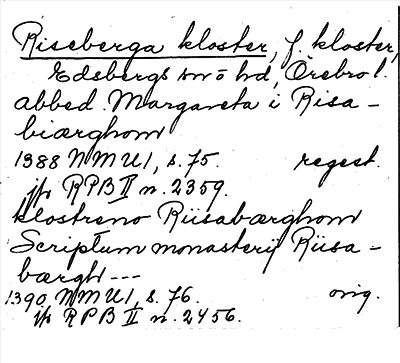 Riseberga kloster, f. kloster,
Edsbergs sn o hd, Örebro l.
abbed. Margareta i Risa-
biærghom
1388 NMU1, s. 75. regest.
jfr RPB II n. 2359.
klostreno Riisabærghom
Scriptum monasterij Riisa-
bærgh---
1390 NMU1, s. 76. orig.
jfr RPB II n. 2456.